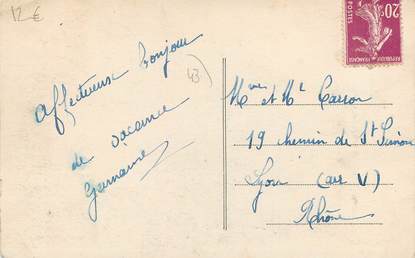 12 €
Affectueux bonjour
de vacance
Germaine
43
20c
POSTES
REPUBLIQUE FRANÇAISE
Mme et Mr Carron
19 chemin de St Simon
Lyon (arr V)
Rhône